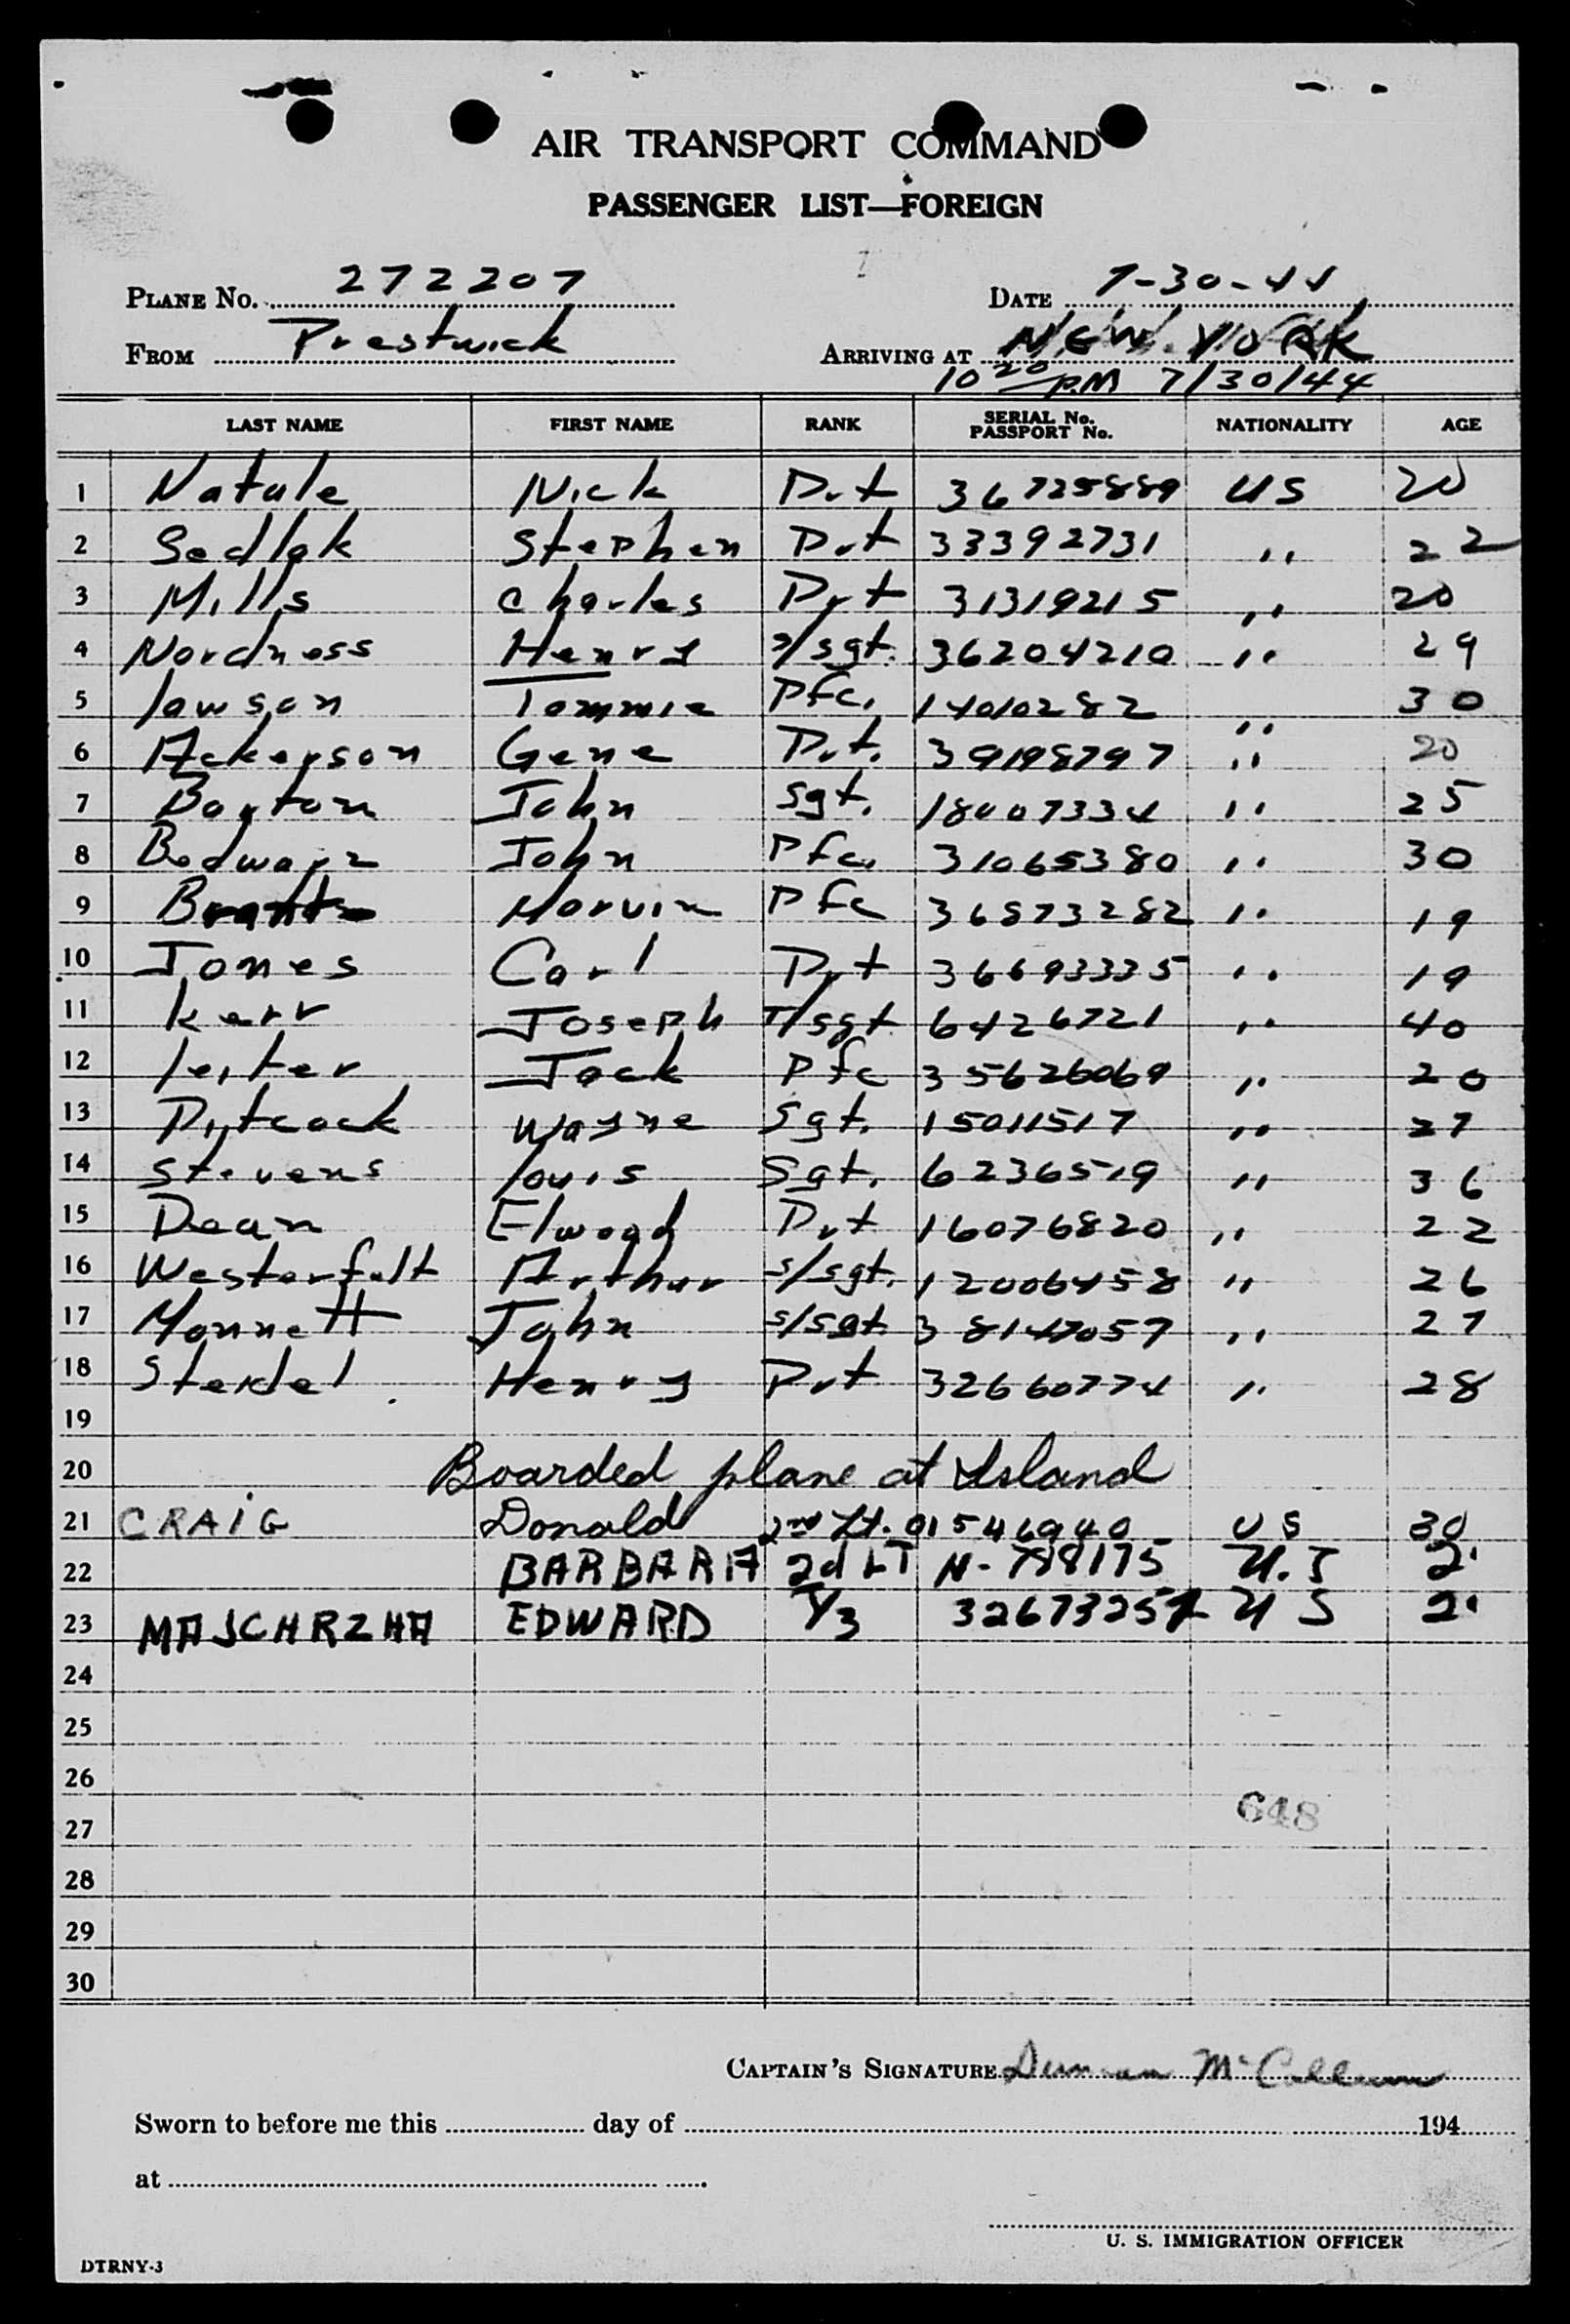 AIR TRANSPORT COMMAND
PASSENGER LIST—FOREIGN
PLANE No. 272207 DATE 7-30-44
FROM Prestwick ARRIVING AT NEW YORK
10 20 P.M 7/30/44
LAST NAME FIRST NAME RANK SERIAL No. PASSPORT No. NATIONALITY AGE
1 Natale Nick Pvt 36725889 US 20
2 Sedlak Stephen Pvt 33392731 " 22
3 Mills Charles Pvt 31319215 " 20
4 Nordness Henry S/sgt. 36204210 " 29
5 lawson Tommie Pfc. 14010282 " 30
6 Ackerson Gene Pvt. 39198797 " 20
7 John Sgt. 18007334 " 25
8 John Pfc. 31065380 " 30
9 Marvin Pfc 36873282 " 19
10 Jones Carl Pvt 36693335 " 19
11 Kerr Joseph T/sgt 6426721 " 40
12 leiter Jack Pfc 35626069 " 20
13 Pitcock Wayne Sgt. 15011517 " 27
14 Stevens louis Sgt. 6236519 " 36
15 Dean Elwood Pvt 16076820 " 22
16 Westerfelt Arthur s/sgt. 12006458 " 26
17 Monnett John s/sgt. 38147057 " 27
18 Steidel Henry Pvt 32660774 " 28
19
20 Boarded plane at Island
21 CRAIG Donald 2nd Lt. 01546940 US 30
22 BARBARA 2d LT U.S
23 MAJCHRZHA EDWARD T/3 U S
24
25
26
27 648
28
29
30
CAPTAIN'S SIGNATURE McCallum
Sworn to before me this day of 194
at
U. S. IMMIGRATION OFFICER
DTRNY-3